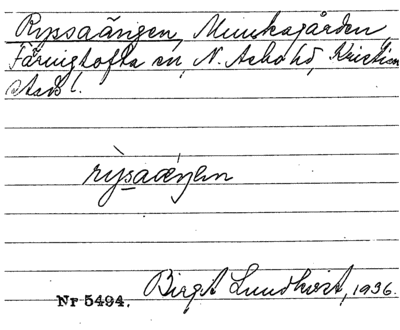 Ryssaängen, Munkagården,
Färingtofta sn, N. Asbo hd, Kristian
stads l.
rỳsaäŋən
Birgit Lundkvist, 1936.
Nr 5494.